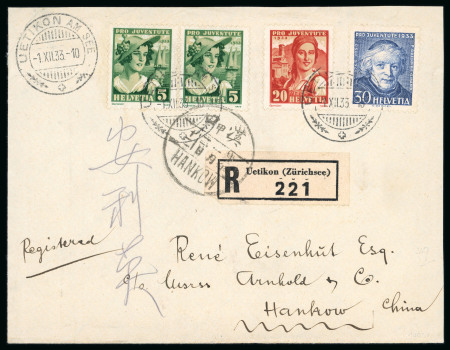 UETIKON AM SEE
-1.XII.33.-10
PRO JUVENTUTE
5
HELVETIA
PRO JUVENTUTE
5
HELVETIA
PRO JUVENTUTE
1933
20
HELVETIA
PRO JUVENTUTE 1933
30 HELVETIA
-1.XII.33.-10
漢
HANKOW
R
Uetikon (Zürichsee)
221
安利英
Registered
René Eisenhut Esq.
c/o Messrs Arnhold & Co.
Hankow
China